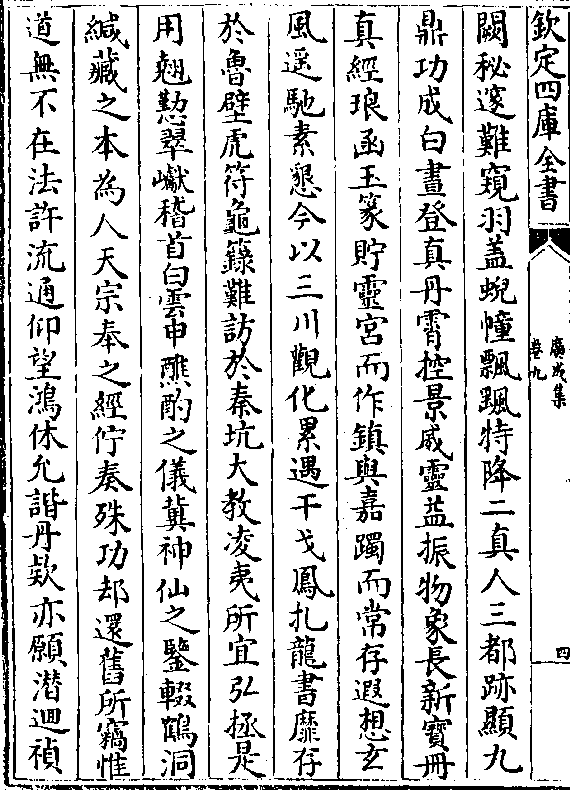 欽定四庫全書
廣成集
卷九
四
闕秘邃難窺羽蓋蜺幢飄颻特降二真人三都跡顯九
鼎功成白晝登真丹霄控景威靈益振物象長新寶冊
真經琅函玉篆貯靈宮而作鎮與嘉躅而常存遐想玄
風遥馳素懇今以三川觀化累遇干戈鳳扎龍書靡存
於魯壁虎符龜籙難訪於秦坑大教凌夷所宜弘拯是
用翹懃翠巘稽首白雲申醮酌之儀冀神仙之鑒輟鶴洞
緘藏之本為人天宗奉之經佇奏殊功却還舊所竊惟
道無不在法許流通仰望鴻休允諧丹欵亦願潛迴禎